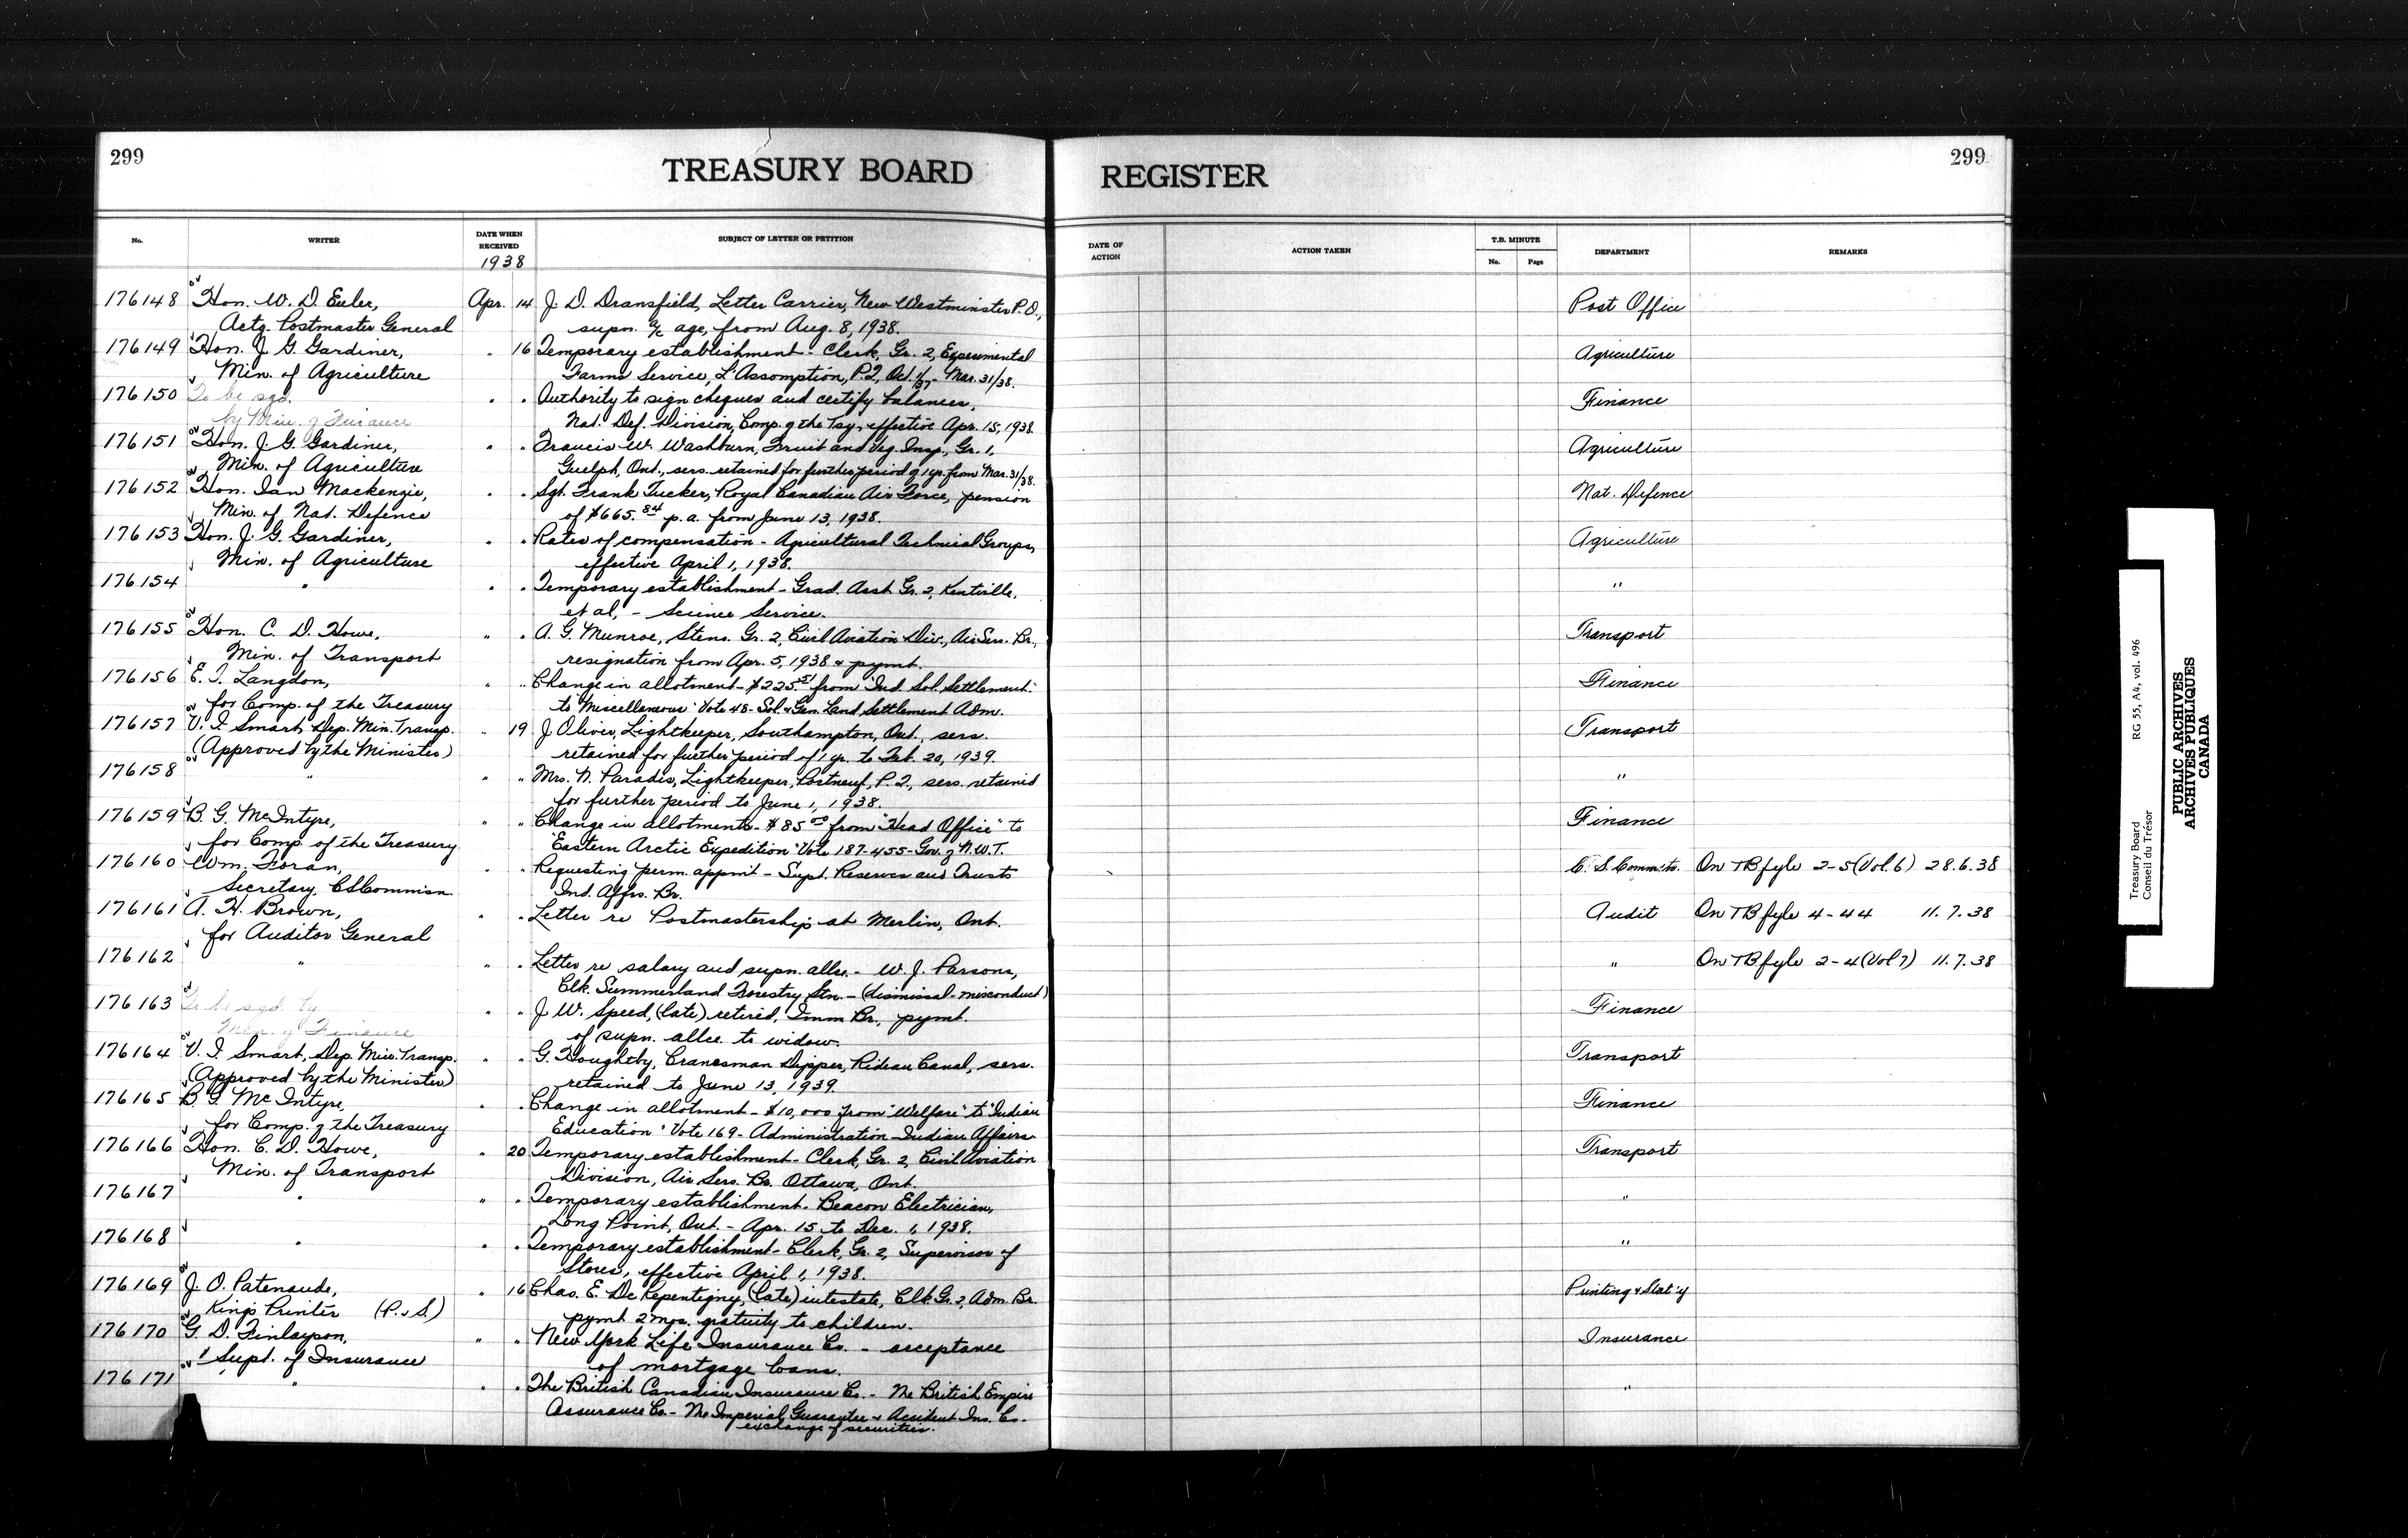 299
TREASURY BOARD
REGISTER
299
No.
WRITER
DATE WHEN
RECEIVED
1938
SUBJECT OF LETTER OR PETITION
DATE OF
ACTION
ACTION TAKEN
T.B. MINUTE
No.
Page
DEPARTMENT
REMARKS
176148 Hon. W. D. Euler, Apr. 14 J. D. Dransfield, Letter Carrier, New Westminster P.O., Post Office
Actg. Postmaster General supn. a/c age, from Aug. 8, 1938.
176149 Hon. J. G. Gardiner, " 16 Temporary establishment - Clerk, Gr. 2, Experimental Agriculture
Min. of Agriculture Farms Service, L'Assomption, P.Q., Oct. 1/37 - Mar. 31/38.
176150 To be sgd. " " Authority to sign cheques and certify balances, Finance
by Min. of Finance Nat. Def. Division, Comp. of the Tsy., effective Apr. 15, 1938.
176151 Hon. J. G. Gardiner, " " Francis W. Washburn, Fruit and Veg. Insp., Gr. 1, Agriculture
Min. of Agriculture Guelph, Ont., sers. retained for further period of 1 yr. from Mar. 31/38.
176152 Hon. Ian Mackenzie, " " Sgt. Frank Tucker, Royal Canadian Air Force, pension Nat. Defence
Min. of Nat. Defence of $665.84 p.a. from June 13, 1938.
176153 Hon. J. G. Gardiner, " " Rates of compensation - Agricultural Technical Groups, Agriculture
Min. of Agriculture effective April 1, 1938.
176154 " " " Temporary establishment - Grad. Asst. Gr. 2, Kentville, "
et al, - Science Service.
176155 Hon. C. D. Howe, " " A. G. Munroe, Steno. Gr. 2, Civil Aviation Div., Air Serv. Br., Transport
Min. of Transport resignation from Apr. 5, 1938 & pymt.
176156 E. I. Langdon, " " Change in allotment - $225.51 from "Ind. Sol. Settlement" Finance
for Comp. of the Treasury to "Miscellaneous" Vote 48 - Sol. & Gen. Land Settlement Adm.
176157 V. I. Smart, Dep. Min. Transp. " 19 J. Oliver, Lightkeeper, Southampton, Ont., sers. Transport
(Approved by the Minister) retained for further period of 1 yr. to Feb. 20, 1939.
176158 " " " Mrs. N. Paradis, Lightkeeper, Portneuf, P.Q., sers. retained "
for further period to June 1, 1938.
176159 B. G. McIntyre, " " Change in allotments - $85.00 from "Head Office" to Finance
for Comp. of the Treasury "Eastern Arctic Expedition" Vote 187-455 - Gov. of N.W.T.
176160 Wm. Foran, " " Requesting perm. appmt - Supt. Reserves and Trusts C. S. Comm'n. On TB fyle 2-5 (Vol. 6) 28.6.38
Secretary, CSCommisn. Ind. Affrs. Br.
176161 A. H. Brown, " " Letter re Postmastership at Merlin, Ont. Audit On TB fyle 4-44 11.7.38
for Auditor General
176162 " " " Letter re salary and supn. allce. - W. J. Parsons, " On TB fyle 2-4 (Vol 7) 11.7.38
Clk. Summerland Forestry Stn. - (dismissal - misconduct)
176163 To be sgd. by " " J. W. Speed, (late) retired, Imm Br., pymt. Finance
Min. of Finance of supn. allce. to widow.
176164 V. I. Smart, Dep. Min. Transp. " " G. Houghtby, Cranesman Dipper, Rideau Canal, sers. Transport
(Approved by the Minister) retained to June 13, 1939.
176165 B. G. McIntyre, " " Change in allotment - $10,000 from "Welfare" to "Indian Finance
for Comp. of the Treasury Education" Vote 169 - Administration - Indian Affairs
176166 Hon. C. D. Howe, " 20 Temporary establishment - Clerk, Gr. 2, Civil Aviation Transport
Min. of Transport Division, Air Serv. Br. Ottawa, Ont.
176167 " " " Temporary establishment - Beacon Electrician, "
Long Point, Ont. - Apr. 15 to Dec. 1, 1938.
176168 " " " Temporary establishment - Clerk, Gr. 2, Supervisor of "
Stores, effective April 1, 1938.
176169 J. O. Patenaude, " 16 Chas. E. De Repentigny, (late) intestate, Clk. Gr. 2, Adm. Br. Printing & Stat'y
King's Printer (P. & S.) pymt 2 mos. gratuity to children.
176170 G. D. Finlayson, " " New York Life Insurance Co. - acceptance Insurance
Supt. of Insurance of mortgage loans.
176171 " " " The British Canadian Insurance Co. - The British Empire "
Assurance Co. - The Imperial Guarantee & Accident Ins. Co. -
exchange of securities.
Treasury Board
Conseil du Trésor
RG 55, A4, vol. 496
PUBLIC ARCHIVES
ARCHIVES PUBLIQUES
CANADA